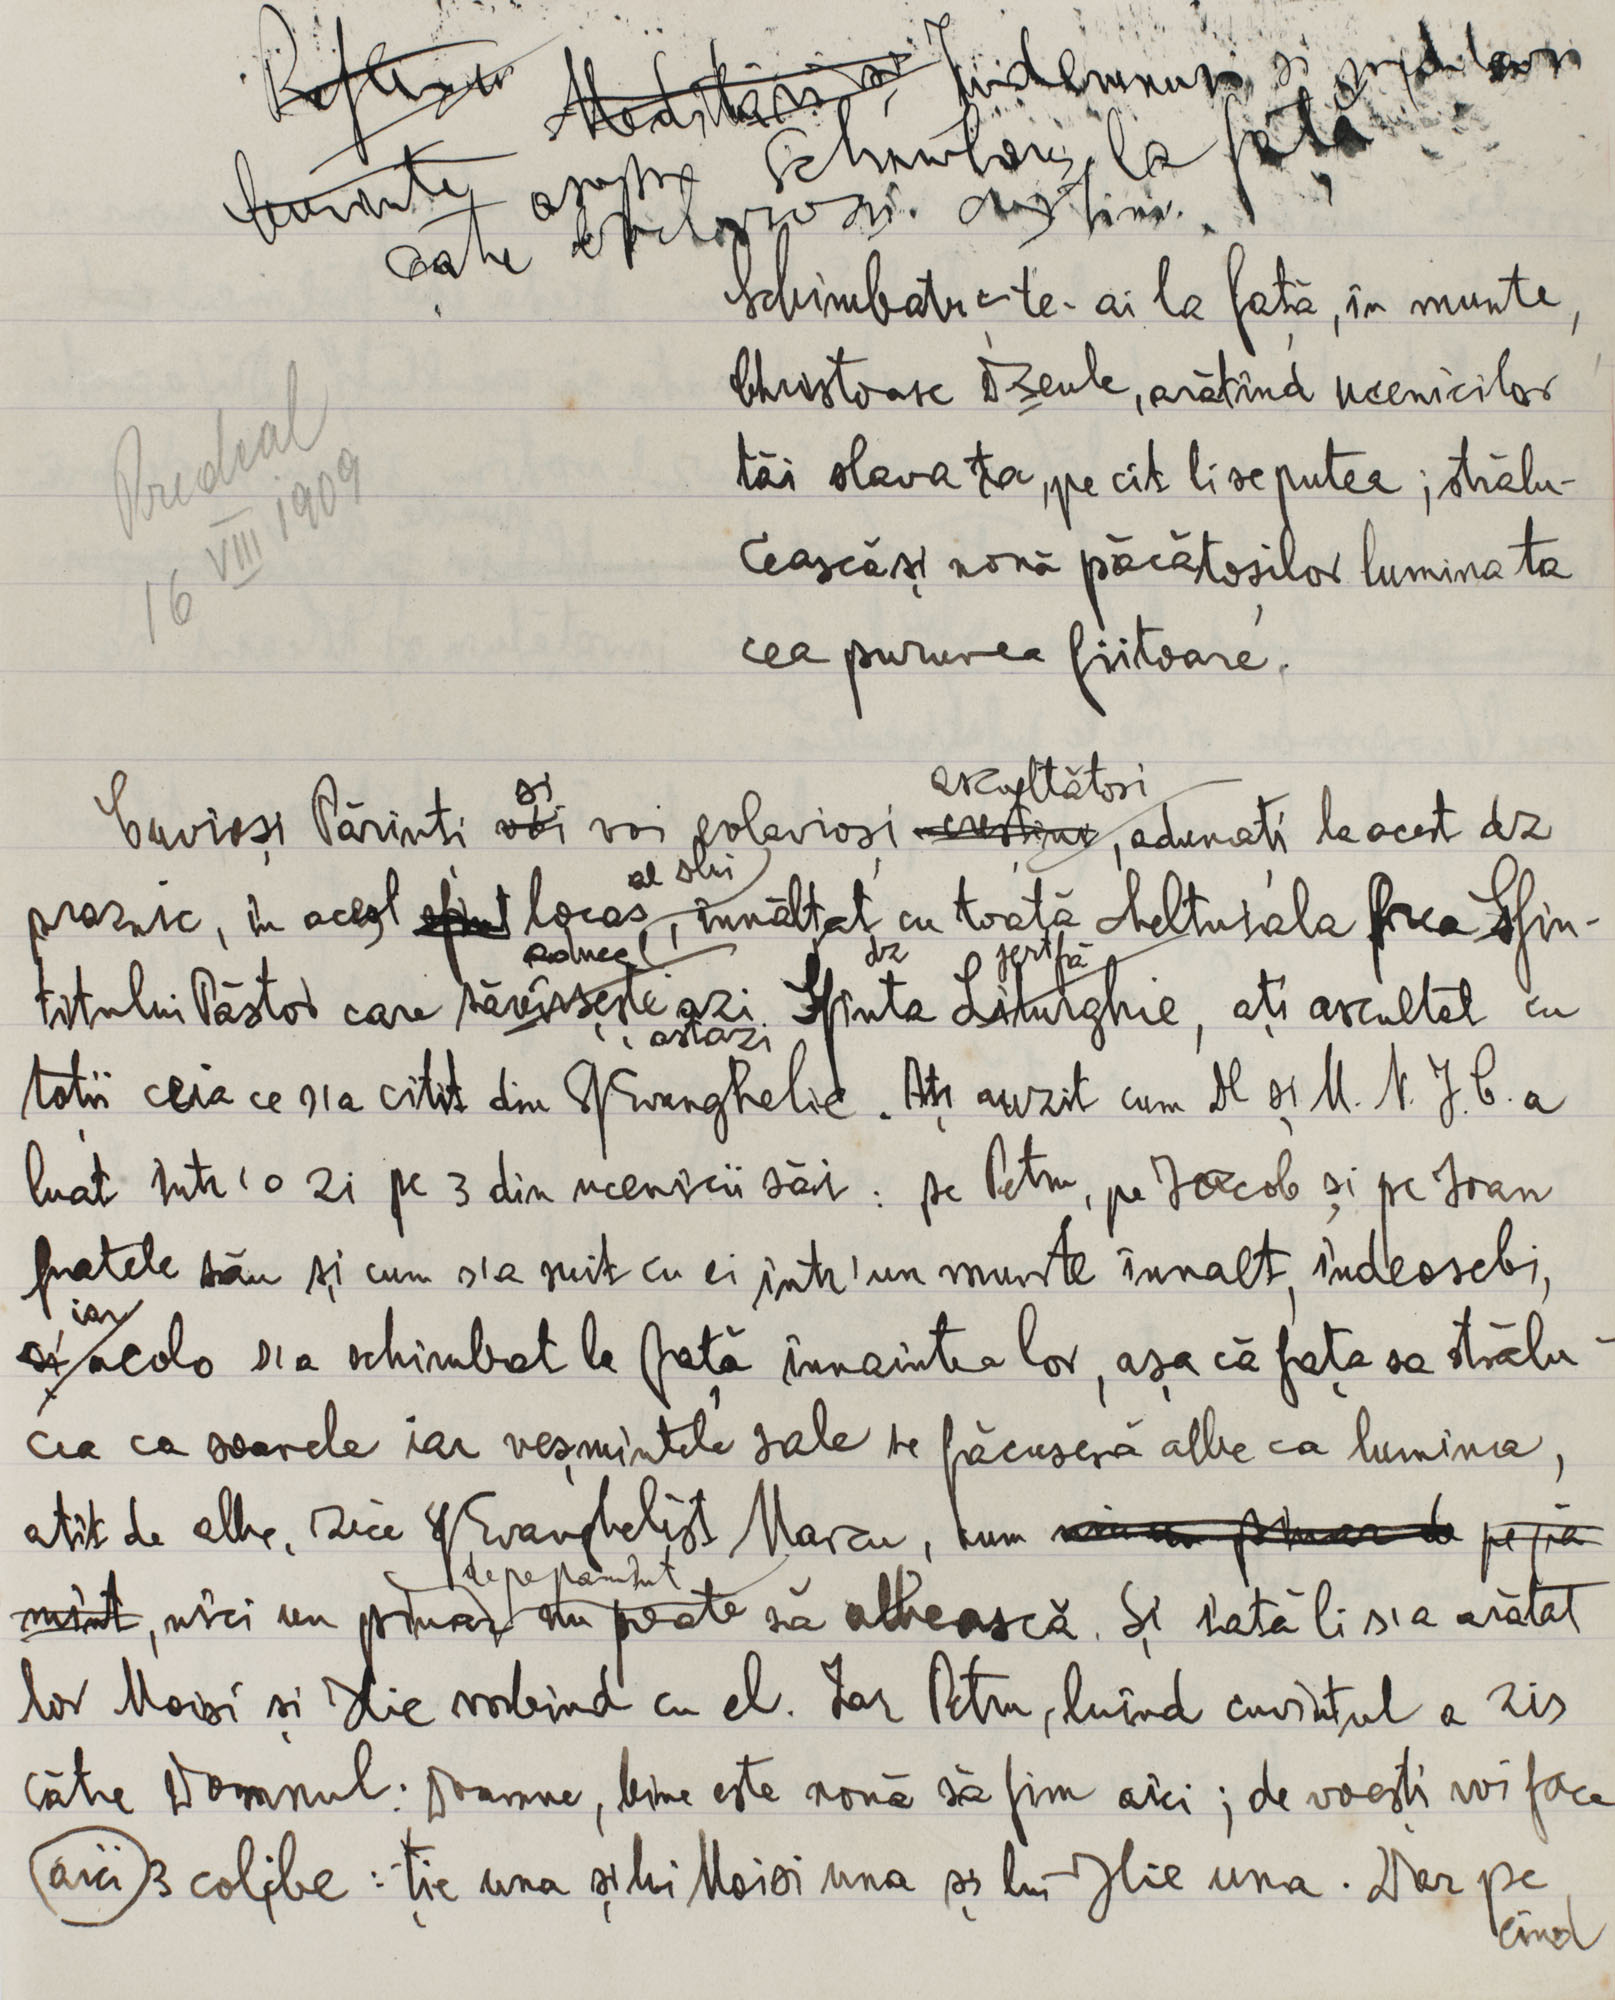 Îndemnuri și meditări
Cuvinte asupra Schimbării la față
către evlavioși creștini.
Schimbatu-te-ai la față, în munte,
Christoase Dzeule, arătînd ucenicilor
tăi slava ta, pe cît li se putea; strălu-
cească și nouă păcătoșilor lumina ta
cea pururea fiitoare.
Predeal
16 VIII 1909
și ascultători
Cuvioși Părinți voi voi evlavioși creștini, adunați la acest dz
al slui
praznic, în acest sfint locaș, înnălțat cu toată cheltuiala Prea Sfin-
aduce dz jertfă
țitului Păstor care săvîrșește azi Sfinta Liturghie, ați ascultat cu
astazi
toții ceia ce s'a citit din Sf Evanghelie. Ați auzit cum Dl și M. N. J. C. a
luat într'o zi pe 3 din ucenicii săi: pe Petru, pe Iacob și pe Ioan
fratele său și cum s'a suit cu ei într'un munte înnalt, îndeosebi,
iar
și acolo s'a schimbat la față înnaintea lor, așa că fața sa strălu-
cea ca soarele iar veșmintele sale se făcuseră albe ca lumina,
atît de albe, zice Sf Evanghelist Marcu, cum pe pă
de pe pamînt
mînt, nici un pînar nu poate să albească. Și iată li s'a arătat
lor Moisi și Ilie vorbind cu el. Iar Petru, luînd cuvîntul a zis
către Domnul: Doamne, bine este nouă să fim aici; de voești voi face
aici 3 colibe: ție una și lui Moisi una și lui Ilie una. Dar pe
cînd